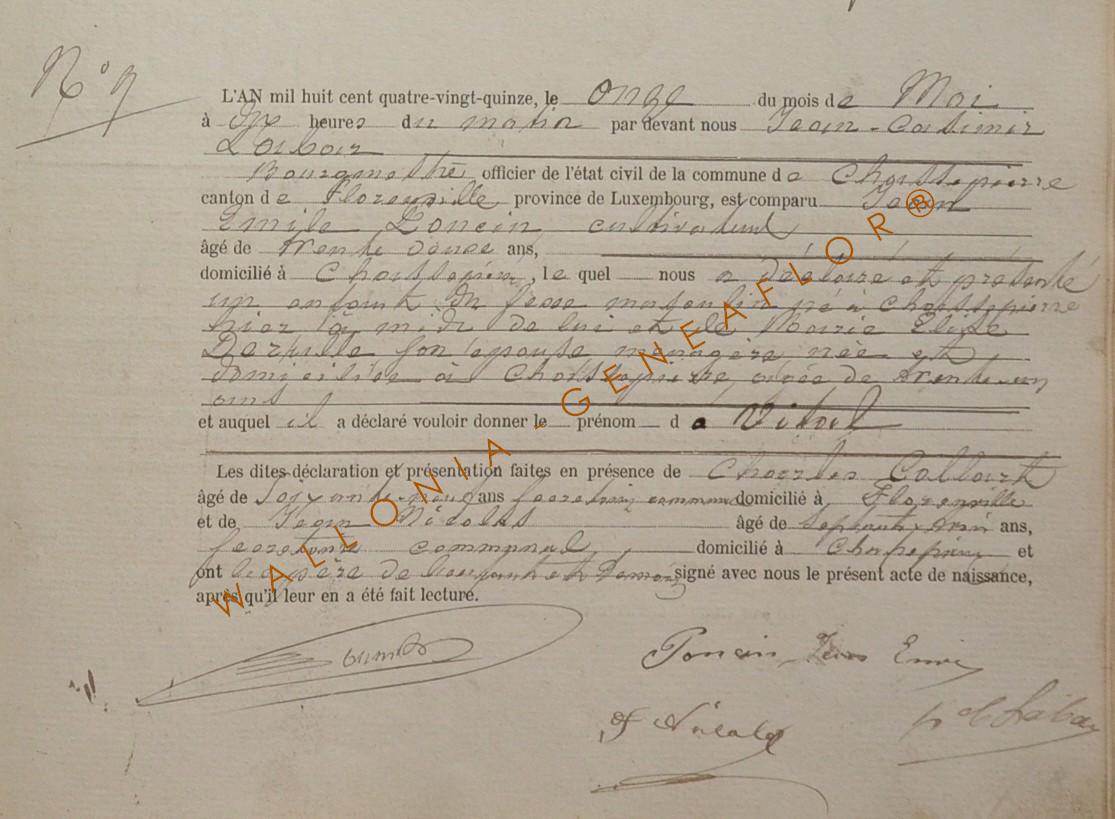 N° 9
L'AN mil huit cent quatre-vingt-quinze, le onze du mois de Mai
à dix heures du matin par devant nous Jean-Casimir
Bourgmestre officier de l'état civil de la commune de Chassepierre
canton de Florenville province de Luxembourg, est comparu Jean
Emile Poncin, cultivateur
âgé de trente ans,
domicilié à Chassepierre, le quel nous a déclaré et présenté
un enfant du sexe masculin né à Chassepierre
hier à midi de lui et de Marie Elise
son épouse ménagère, née et
domiciliée à Chassepierre, âgée de trente-un
ans
et auquel il a déclaré vouloir donner le prénom de Vital
Les dites déclaration et présentation faites en présence de Charles Collart
âgé de soixante-neuf ans domicilié à Florenville
et de Jean Nicolas âgé de ans,
secrétaire communal, domicilié à Chassepierre et
ont le père de l'enfant et témoins signé avec nous le présent acte de naissance,
après qu'il leur en a été fait lecture.
Poncin Jean Emile
J Nicolas
WALLONIA - GENEAFLOR®